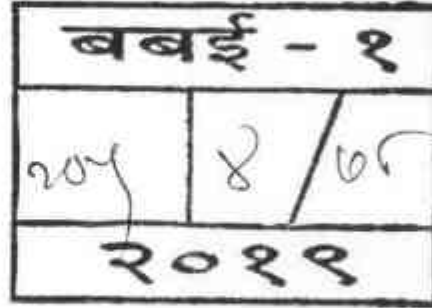 बबई - १
२०५ ४ / ७८
२०१९